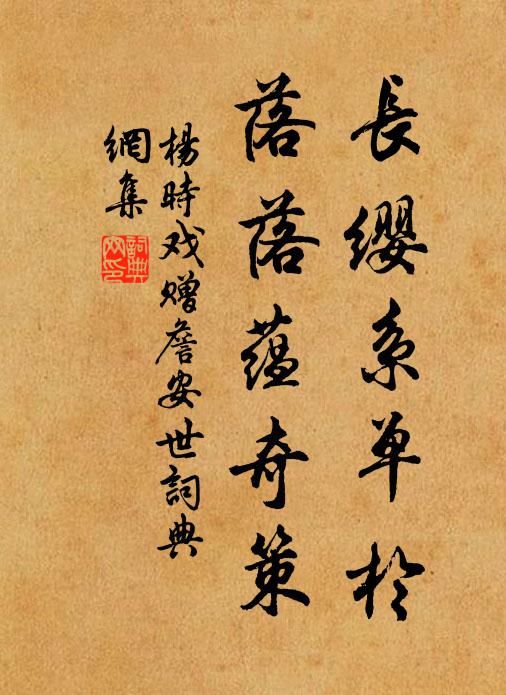 長纓系单於
落落蕴奇策
楊時戏赠詹安世詞典
網集
詞典
网印